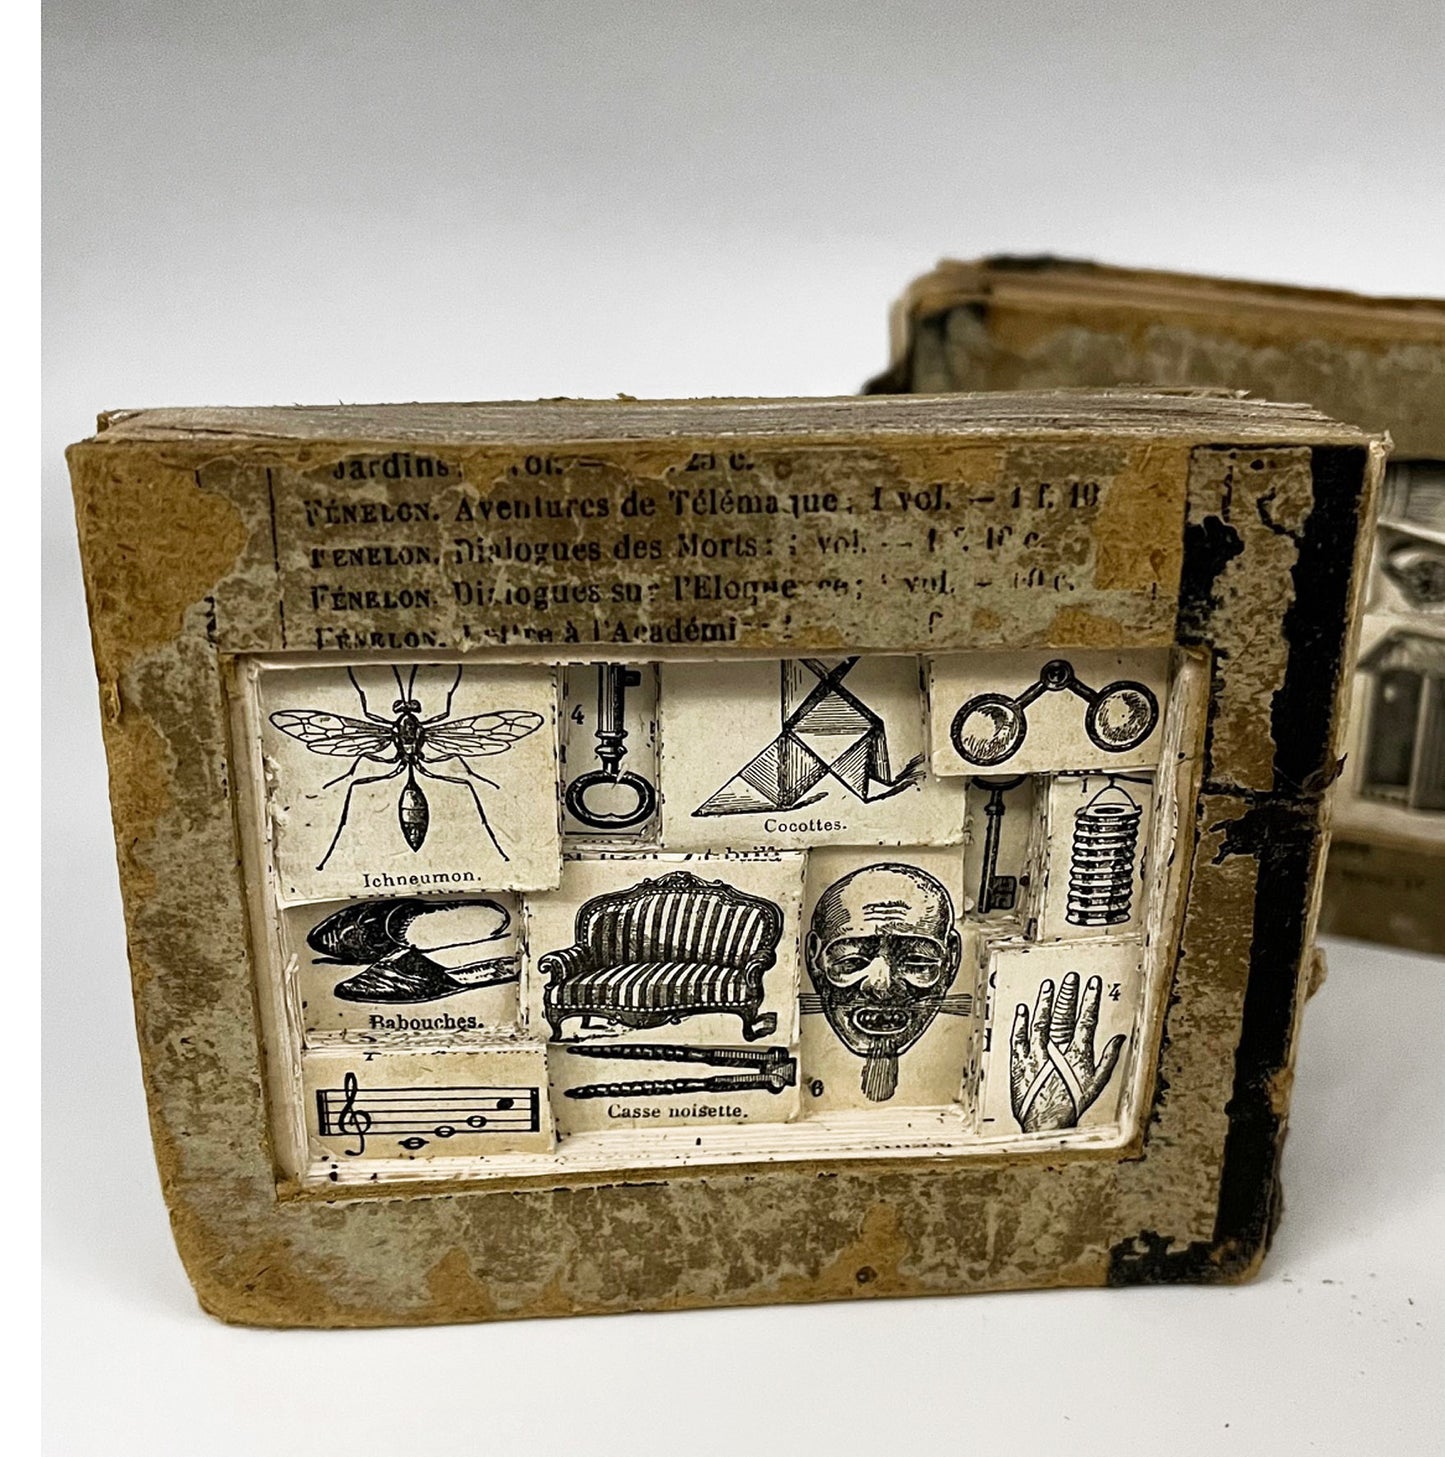 Jardins
FÉNELON. Aventures de Télémaque; 1 vol. — 1 f. 10
FÉNELON. Dialogues des Morts; 1 vol. — 1 f. 10 c.
FÉNELON. Dialogues sur l'Eloquence; 1 vol. —
FÉNELON. Lettre à l'Académi
4
Cocottes.
1
Ichneumon.
Babouches.
4
6
Casse noisette.